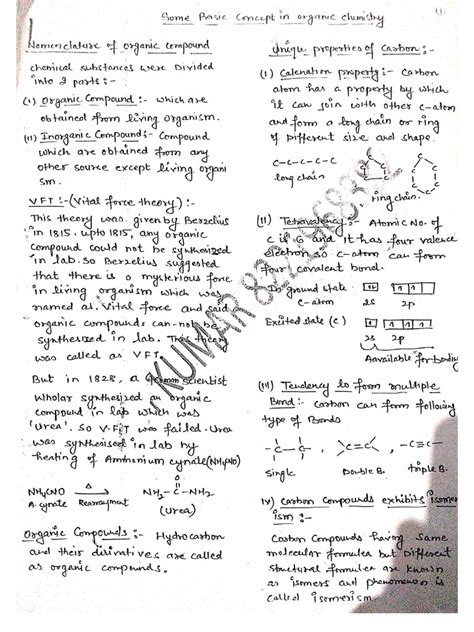 Some Basic Concept in organic chemistry
(1)
Nomenclature of organic compound
chemical substances were Divided
into 2 parts :-
(I) Organic Compound :- which are
obtained from living organism.
(II) Inorganic Compound :- Compound
which are obtained from any
other source except living organi
sm.
VFT :- (Vital force theory) :-
This theory was given by Berzelius
in 1815. upto 1815, any organic
compound could not be synthesized
in lab. So Berzelius suggested
that there is a mysterious force
in living organism which was
named as. Vital force and said
organic compounds can-not be
synthesized in lab. This theory
was called as VFT.
But in 1828, a German scientist
Wholar synthesized an organic
compound in lab which was
'Urea'. So V.F.T was failed. Urea
was synthesised in lab by
heating of Ammonium cynate (NH4CNO)
NH4CNO Δ→ NH2-C-NH2
O
A. cynate Rearrangement (Urea)
Organic Compounds :- Hydrocarbon
and their dirivatives are called
as organic compounds.
Unique properties of Carbon :-
(I) Catenation property :- Carbon
atom has a property by which
it can join with other C-atom
and form a long chain or ring
of Different size and shape.
C-C-C-C-C
long chain
ring chain.
(II) Tetravalency :- Atomic No. of
C is 6 and it has four valence
electron so C-atom can form
four covalent bond.
In ground state
C-atom
2s 2p
Excited state (C)
2s 2p
Aavailable for bonding
(III) Tendency to form multiple
Bond :- Carbon can form following
type of Bonds
-C-C- , >C=C< , -C≡C-
single Double B. triple B.
IV) Carbon Compounds exhibits isomer
ism :-
Carbon Compounds having same
molecular formulea but Different
structural formulea are known
as isomers and phenomenon is
called isomerism.
KUMAR